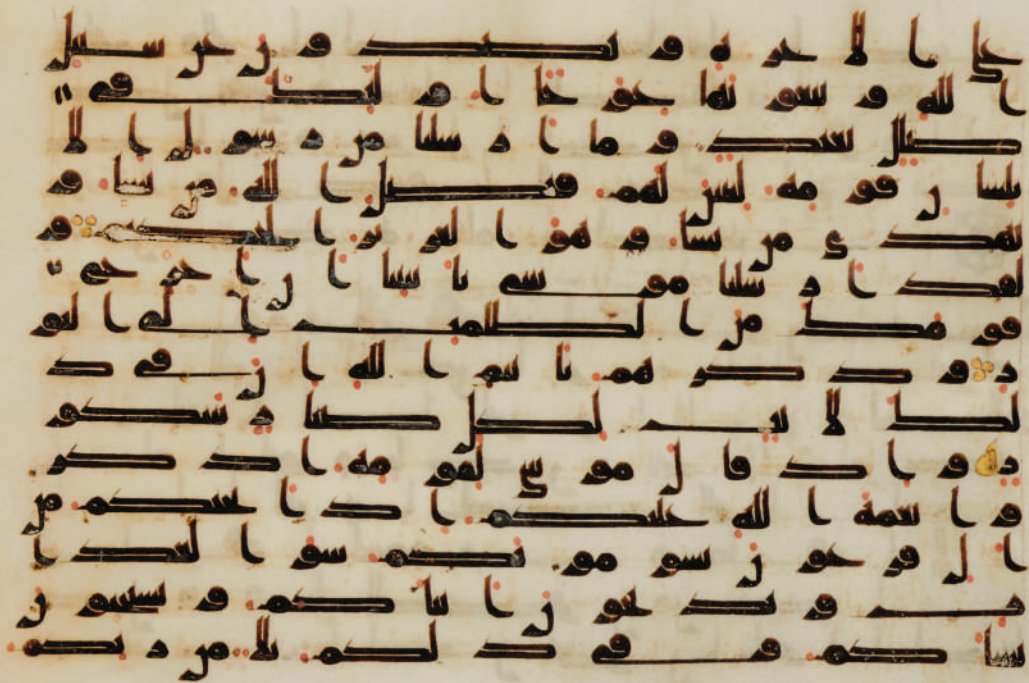 على الاخرة ويصدون عن سبيل
الله ويبغونها عوجا اولئك في
ضلل بعيد وما ارسلنا من رسول الا
بلسان قومه ليبين لهم فيضل الله من يشا و
يهدي من يشا وهو العزيز الحكيم و
لقد ارسلنا موسى بايتنا ان اخرج
قومك من الظلمت الى النو
ر وذكرهم بايم الله ان في ذ
لك لايت لكل صبار شكو
ر واذ قال موسى لقومه اذكر
وا نعمة الله عليكم اذ انجيكم من
ال فرعون يسومونكم سو العذا
ب ويذبحون ابناكم ويستحيون
نساكم وفي ذلكم بلا من ربكم